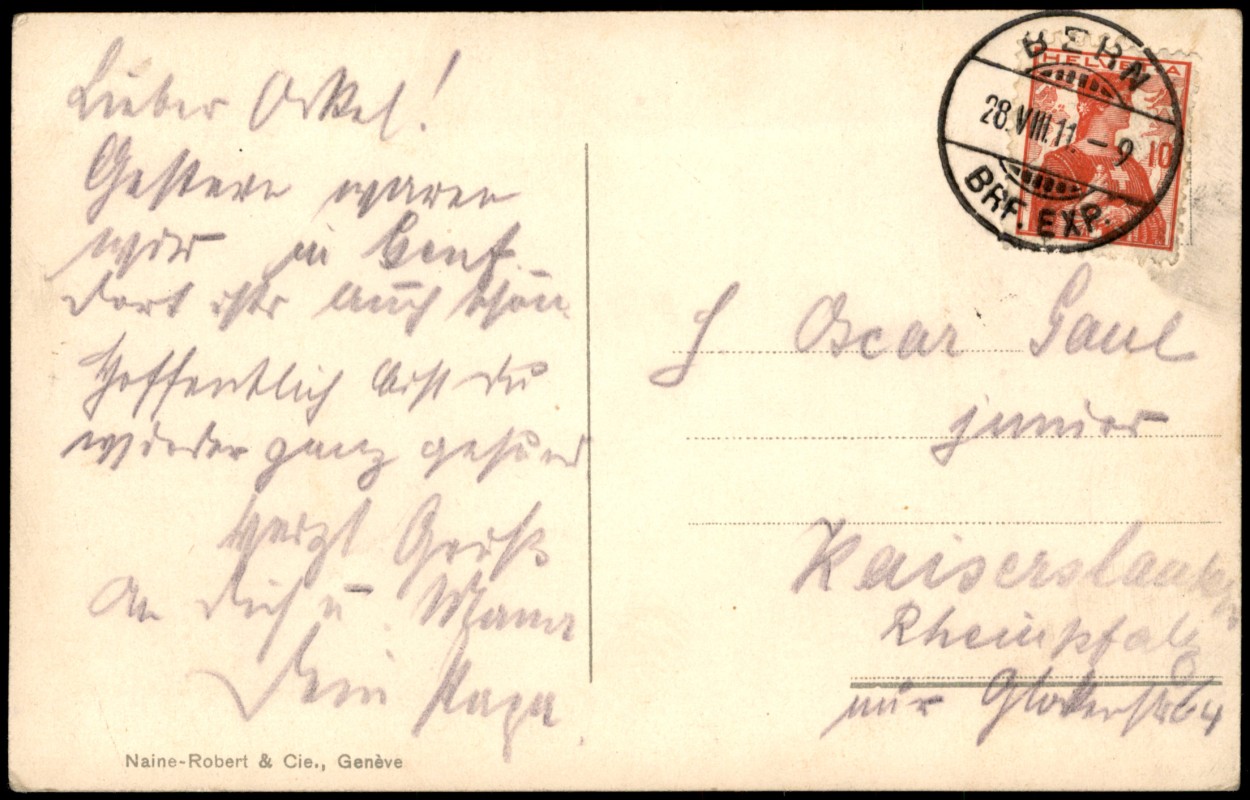 Lieber Oskel!
Gestern waren
wir in Genf.
Dort ists auch schön.
Hoffentlich bist du
wieder ganz gesund
Herzl Gruß
An Dich u Mama
Dein Papa
Naine-Robert & Cie., Genève
BERN
28.VIII.11.-9
BRF. EXP.
HELVETIA
10
H Oscar Gaul
junior
Kaiserslautern
Rheinpfalz
Glockenstr 64